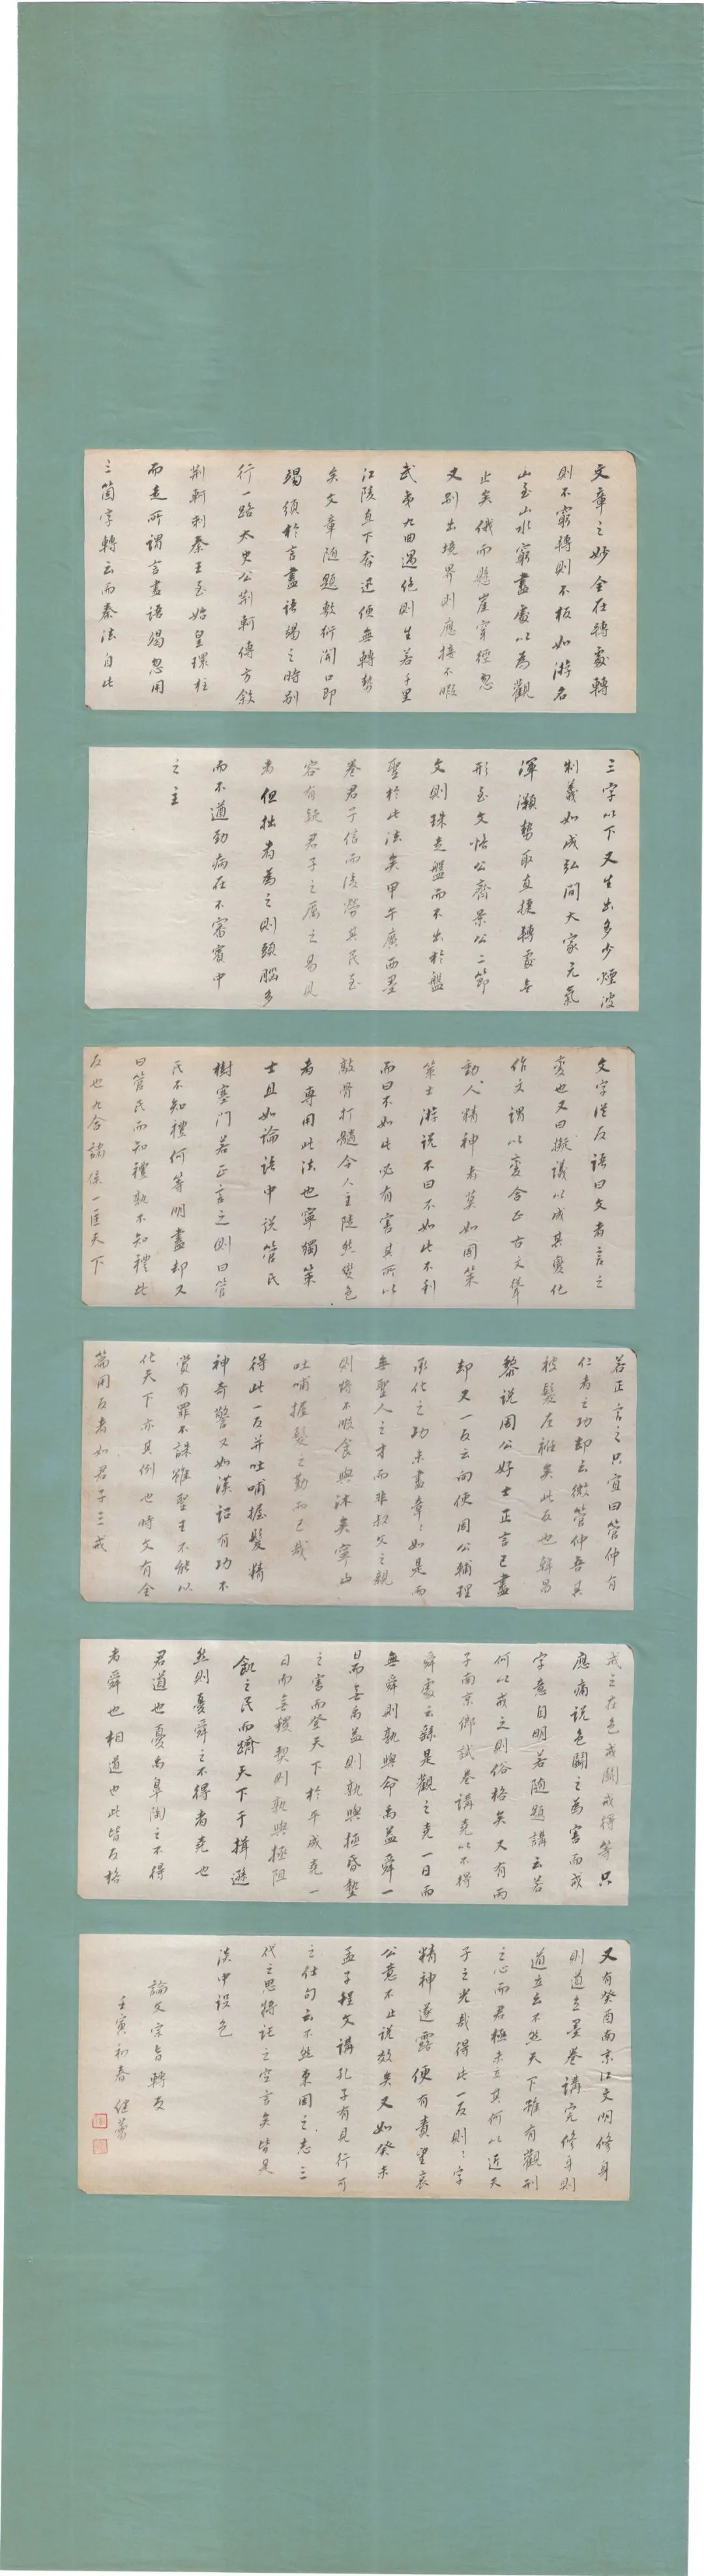 文章之妙全在轉處轉
則不窮轉則不板如游名
山至山水窮盡處以為觀
止矣俄而懸崖穿徑忽
又別出境界則應接不暇
武夷九曲遇絕則生若千里
江陵直下奔迅便無轉勢
矣文章隨題敷衍開口即
竭須於言盡語竭之時別
行一路太史公荊軻傳方敘
荊軻刺秦王至始皇環柱
而走所謂言盡語竭忽用
三箇字轉云而秦法自此
三字以下又生出多少煙波
制義如成弘間大家元氣
渾灝勢取直捷轉處無
形至文恪公齊景公二節
文則珠走盤而不出於盤
聖於此法矣甲午廣西墨
卷君子信而後勞其民至
容有疑君子之厲之易見
者但拙者為之則頭腦多
而不遒勁病在不審賓中
之主
文字從反語曰文者言之
變也又曰擬議以成其變化
作文謂以變合正古文聳
動人精神者莫如國策
策士游說不曰不如此不利
而曰不如此必有害其所以
敲骨打髓令人主陡然變色
者專用此法也寧獨策
士且如論語中說管氏
樹塞門若正言之則曰管
氏不知禮何等明盡却又
曰管氏而知禮孰不知禮此
反也九合諸侯一匡天下
若正言之只宜曰管仲有
仁者之功却云微管仲吾其
被髮左衽矣此反也韓昌
黎說周公好士正言已盡
却又一反云向使周公輔理
承化之功未盡章章如是而
無聖人之才而非叔父之親
則將不暇食與沐矣寧止
吐哺握髮之勤而已哉
得此一反并吐哺握髮精
神奇警又如漢詔有功不
賞有罪不誅雖聖王不能以
化天下亦其例也時文有全
篇用反者如君子三戒
戒之在色戒鬭戒得等只
應痛說色鬭之為害而戒
字意自明若隨題講云若
何以戒之則俗格矣又有丙
子南京鄉試卷講堯以不得
舜處云繇是觀之堯一日而
無舜則孰與命禹益舜一
日而無禹益則孰與拯昏墊
之害而登天下於平成堯一
日而無稷契則孰與拯阻
飢之民而躋天下于揖遜
然則憂舜之不得者堯也
君道也憂禹皋陶之不得
者舜也相道也此皆反格
又有癸酉南京江文明修身
則道立墨卷講完修身則
道立云不然天下雖有觀刑
之心而君極未立其何以近天
子之光哉得此一反則則字
精神遂露便有責望哀
公意不止說效矣又如癸未
孟子程文講孔子有見行可
之仕句云不然東周之志三
代之思將託之空言矣皆是
淡中設色
論文宗旨轉反
壬寅初春